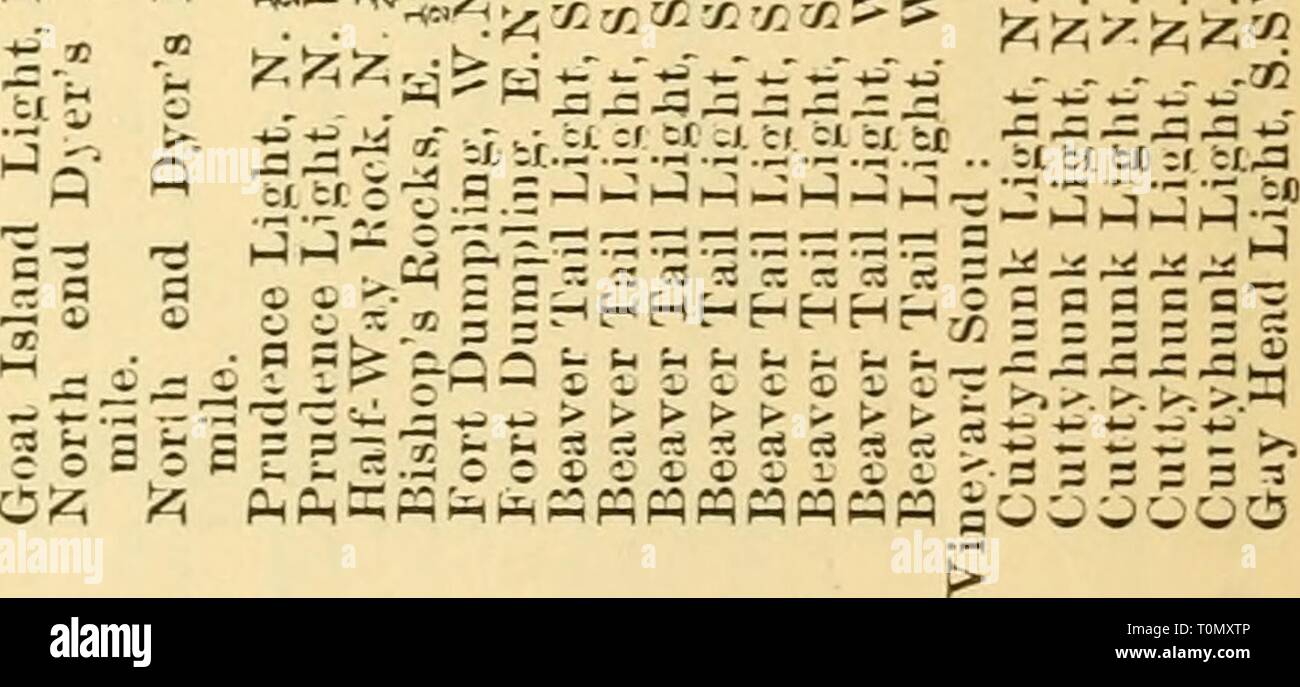 Goat Island Light,
North end Dyer's
mile.
North end Dyer's
mile.
Prudence Light, N. ½
Prudence Light, N.
Half-Way Rock, N.
Bishop's Rocks, E. ½
Fort Dumpling, W.N
Fort Dumpling, E.N
Beaver Tail Light, S
Beaver Tail Light, S
Beaver Tail Light, S
Beaver Tail Light, S
Beaver Tail Light, S
Beaver Tail Light, S
Beaver Tail Light, W
Beaver Tail Light, W
Vineyard Sound:
Cuttyhunk Light, N.
Cuttyhunk Light, N.
Cuttyhunk Light, N.
Cuttyhunk Light, N.
Cuttyhunk Light, N.
Gay Head Light, S.S
alamy
a
a
alamy
a
a
alamy
Image ID: T0MXTP
www.alamy.com